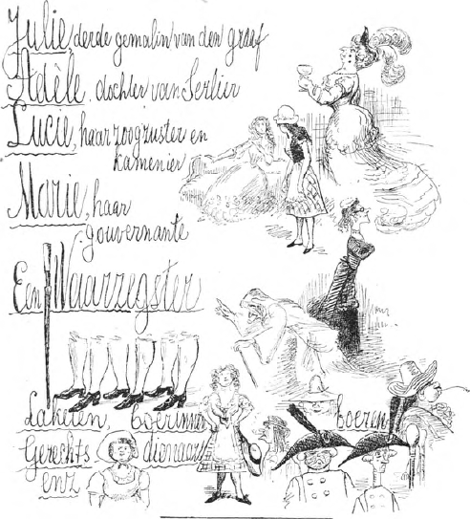 Julie, derde gemalin van den graaf
Adèle, dochter van Serlier
Lucie, haar zoogzuster en
kamenier
Marie, haar
gouvernante
Een Waarzegster
Lakeien, boerinnen boeren
Gerechts dienaars
enz